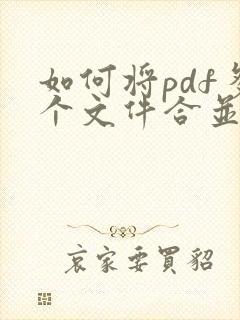 如何将pdf多
个文件合并
哀家要買貂